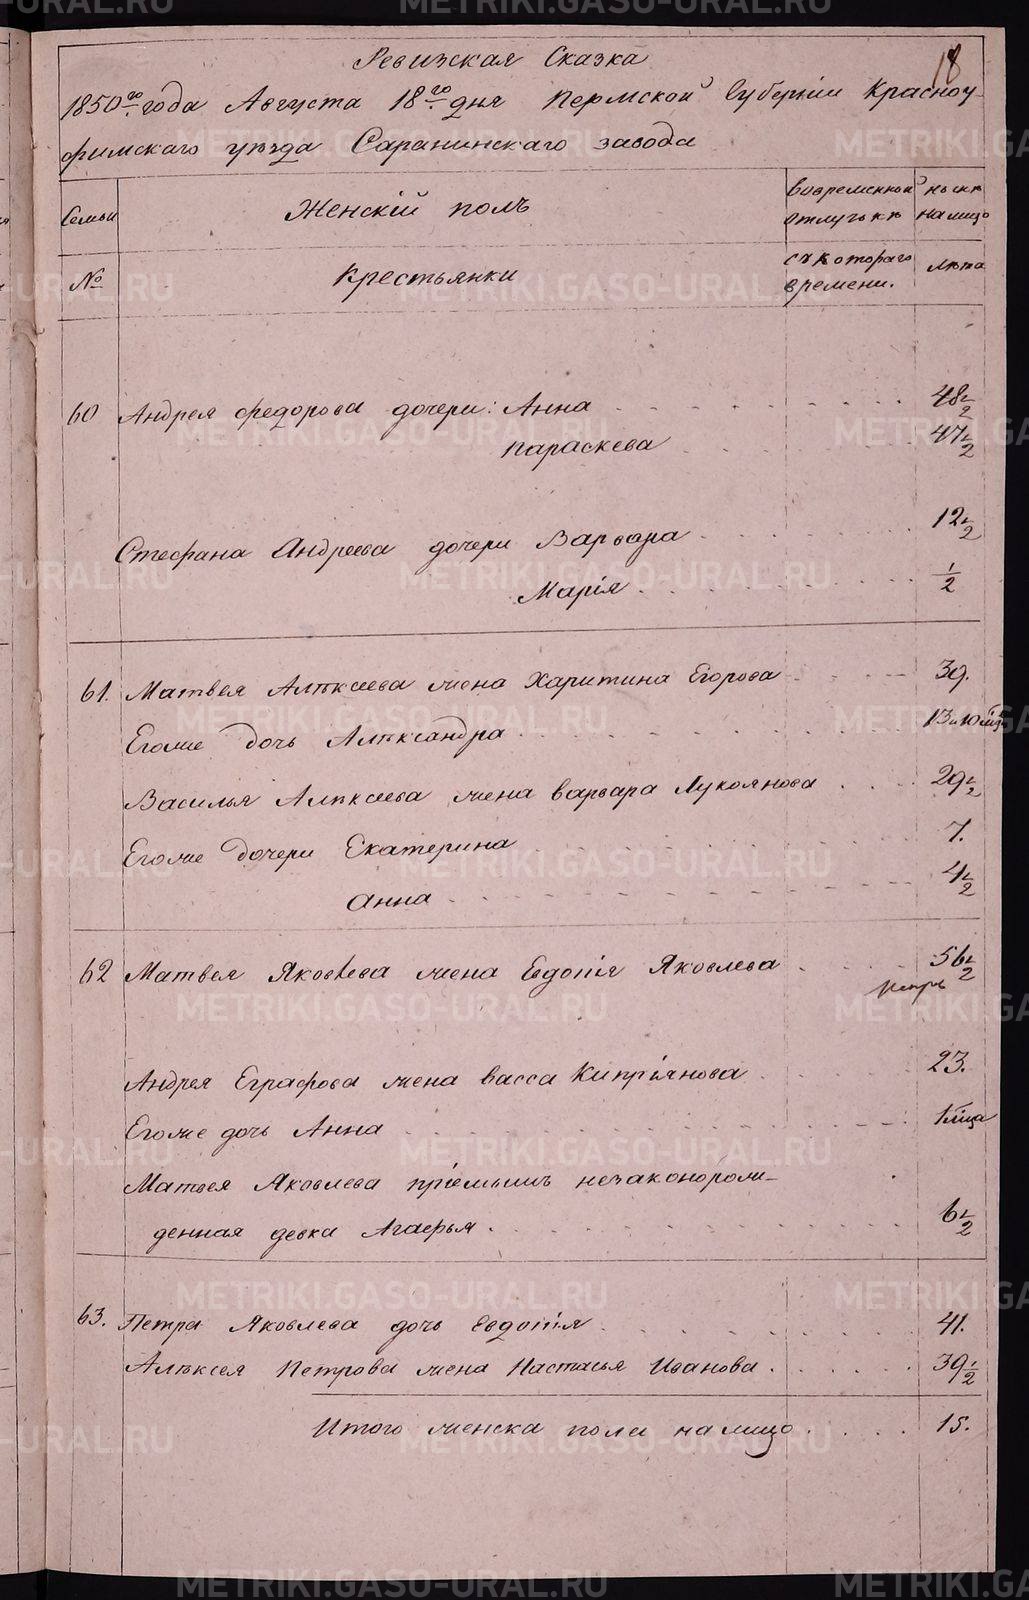 18
Ревизская Сказка
1850го года Августа 18го дня Пермской Губерніи Красноу
фимскаго уѣзда Саранинскаго завода
Семьи
Женскій полъ
Вовременной отлучькѣ
нынѣ на лицо
№
Крестьянки
съкотораго времени.
лѣта
60 Андрея Федорова дочери: Анна 48½
Параскева 47½
Стефана Андреева дочери Варвара 12½
Марія ½
61. Матвея Алѣксеева жена Харитина Егорова 39.
Егоже дочь Алѣксандра 13 и 10 мѣц
Василья Алѣксеева жена Варвара Лукоянова 29½
Егоже дочери Екатерина 7.
Анна 4½
62 Матвея Яковлева жена Евдокія Яковлева 56½
Андрея Еграфова жена Васса Кипріянова 23.
Егоже дочь Анна 1 мѣца
Матвея Яковлева пріемышъ незаконорож-
денная девка Агафья 6½
63. Петра Яковлева дочь Евдокія 41.
Алѣксея Петрова жена Настасья Иванова 39½
Итого женска пола на лицо 15.
METRIKI.GASO-URAL.RU